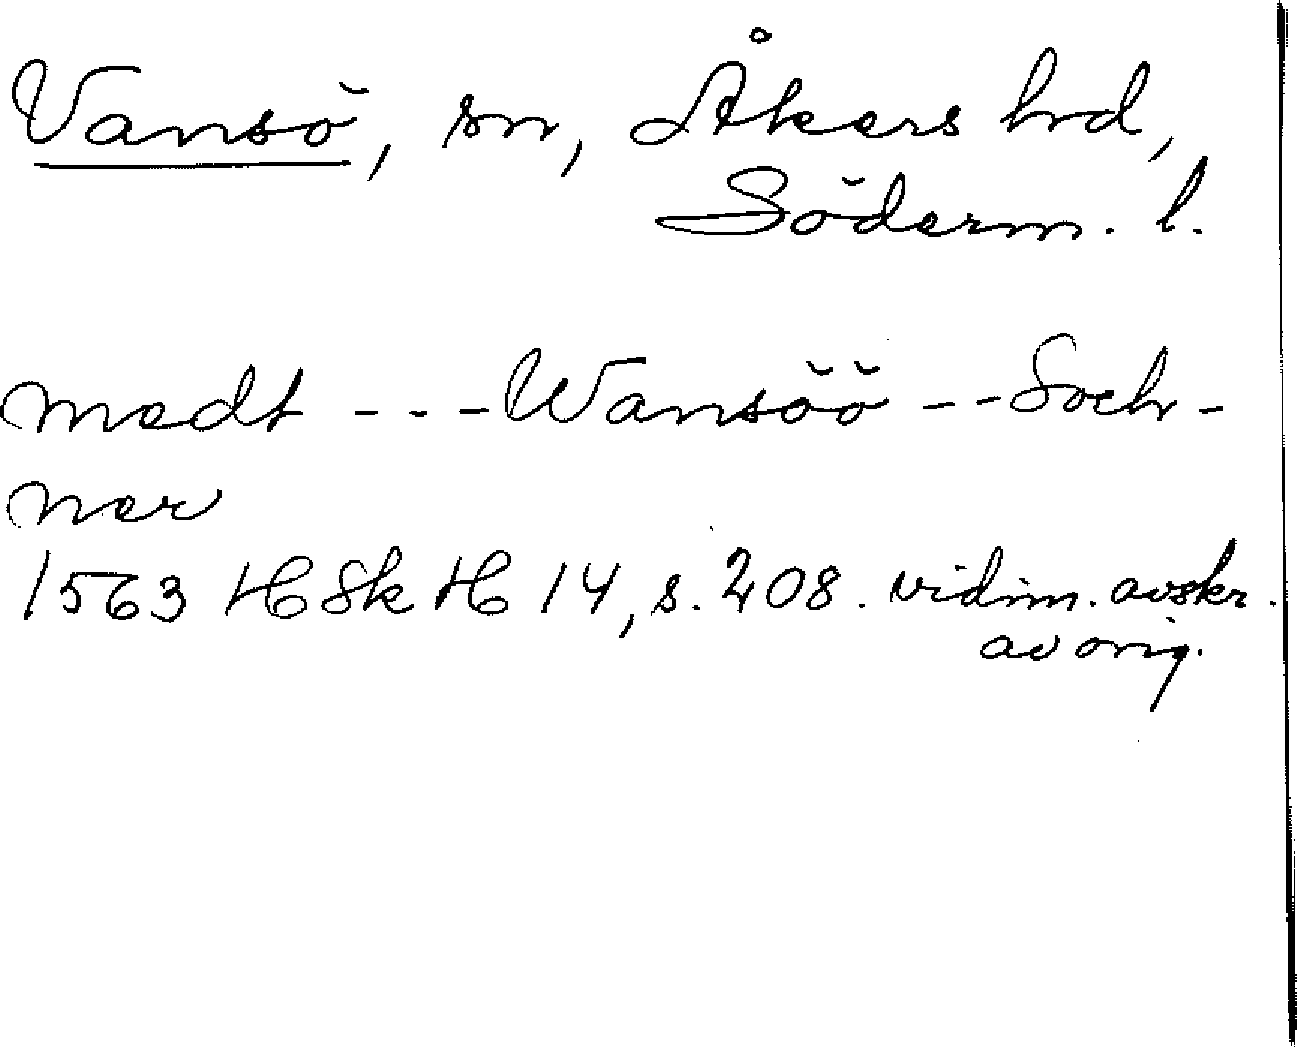 Vansö, sn, Åkers hrd,
Söderm. l.
medt --- Wansöö -- Sochn-
ner
1563 HSkH 14, s. 208. vidim. avskr.
av orig.